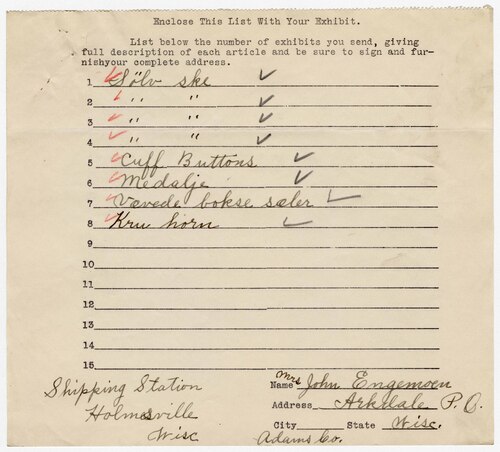 Enclose This List With Your Exhibit.
List below the number of exhibits you send, giving
full description of each article and be sure to sign and fur-
nishyour complete address.
1 Sölv ske
2 " "
3 " "
4 " "
5 Cuff Buttons
6 Medalje
7 Vævede bokse sæler
8 Kru horn
9
10
11
12
13
14
15
Shipping Station
Holmesville
Wisc
Name Mrs John Engemoen
Address Arkdale P. O.
City State Wisc.
Adams Co.